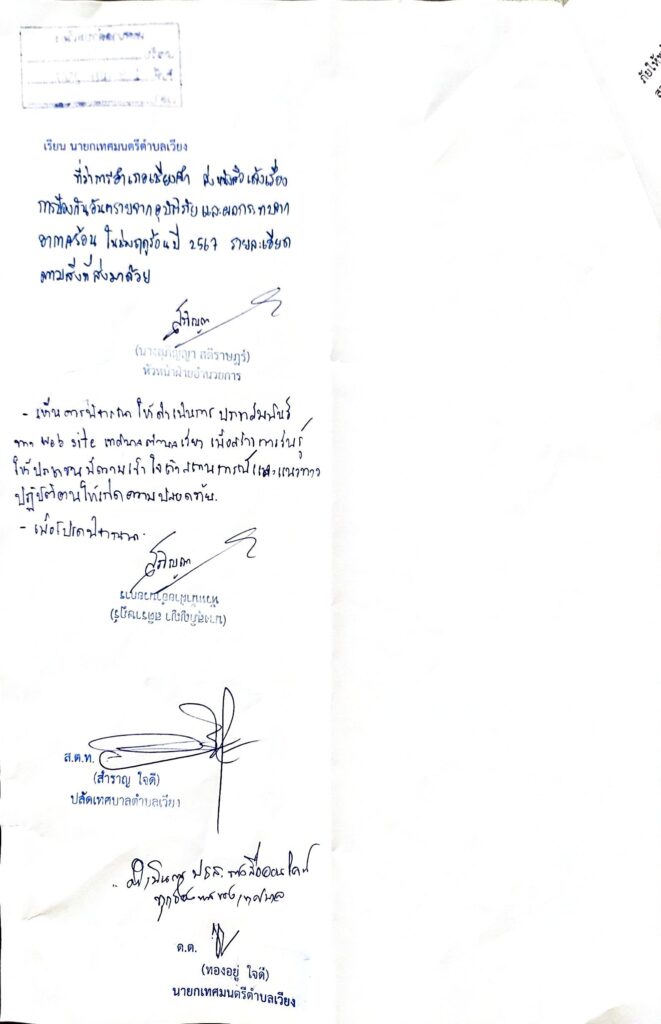 เรียน นายกเทศมนตรีตำบลเวียง
ที่ว่าการอำเภอเชียงคำ ส่งหนังสือแจ้งเรื่อง
การป้องกันอันตรายจากอุบัติภัย และผลกระทบจาก
อากาศร้อน ในช่วงฤดูร้อนปี 2567 รายละเอียด
ตามสิ่งที่ส่งมาด้วย
(นางสุภิญญา สติราษฎร์)
หัวหน้าฝ่ายอำนวยการ
- เห็นควรพิจารณา ให้ดำเนินการ ประชาสัมพันธ์
ทาง Web site เทศบาลตำบลเวียง เพื่อสร้างการรับรู้
ให้ประชาชนมีความเข้าใจถึงสถานการณ์และแนวทาง
ปฏิบัติตนให้เกิดความปลอดภัย.
- เพื่อโปรดพิจารณา.
(นางสุภิญญา สติราษฎร์)
หัวหน้าฝ่ายอำนวยการ
ส.ต.ท.
(สำราญ ใจดี)
ปลัดเทศบาลตำบลเวียง
ทุกช่องทางของเทศบาล
ด.ต.
(ทองอยู่ ใจดี)
นายกเทศมนตรีตำบลเวียง